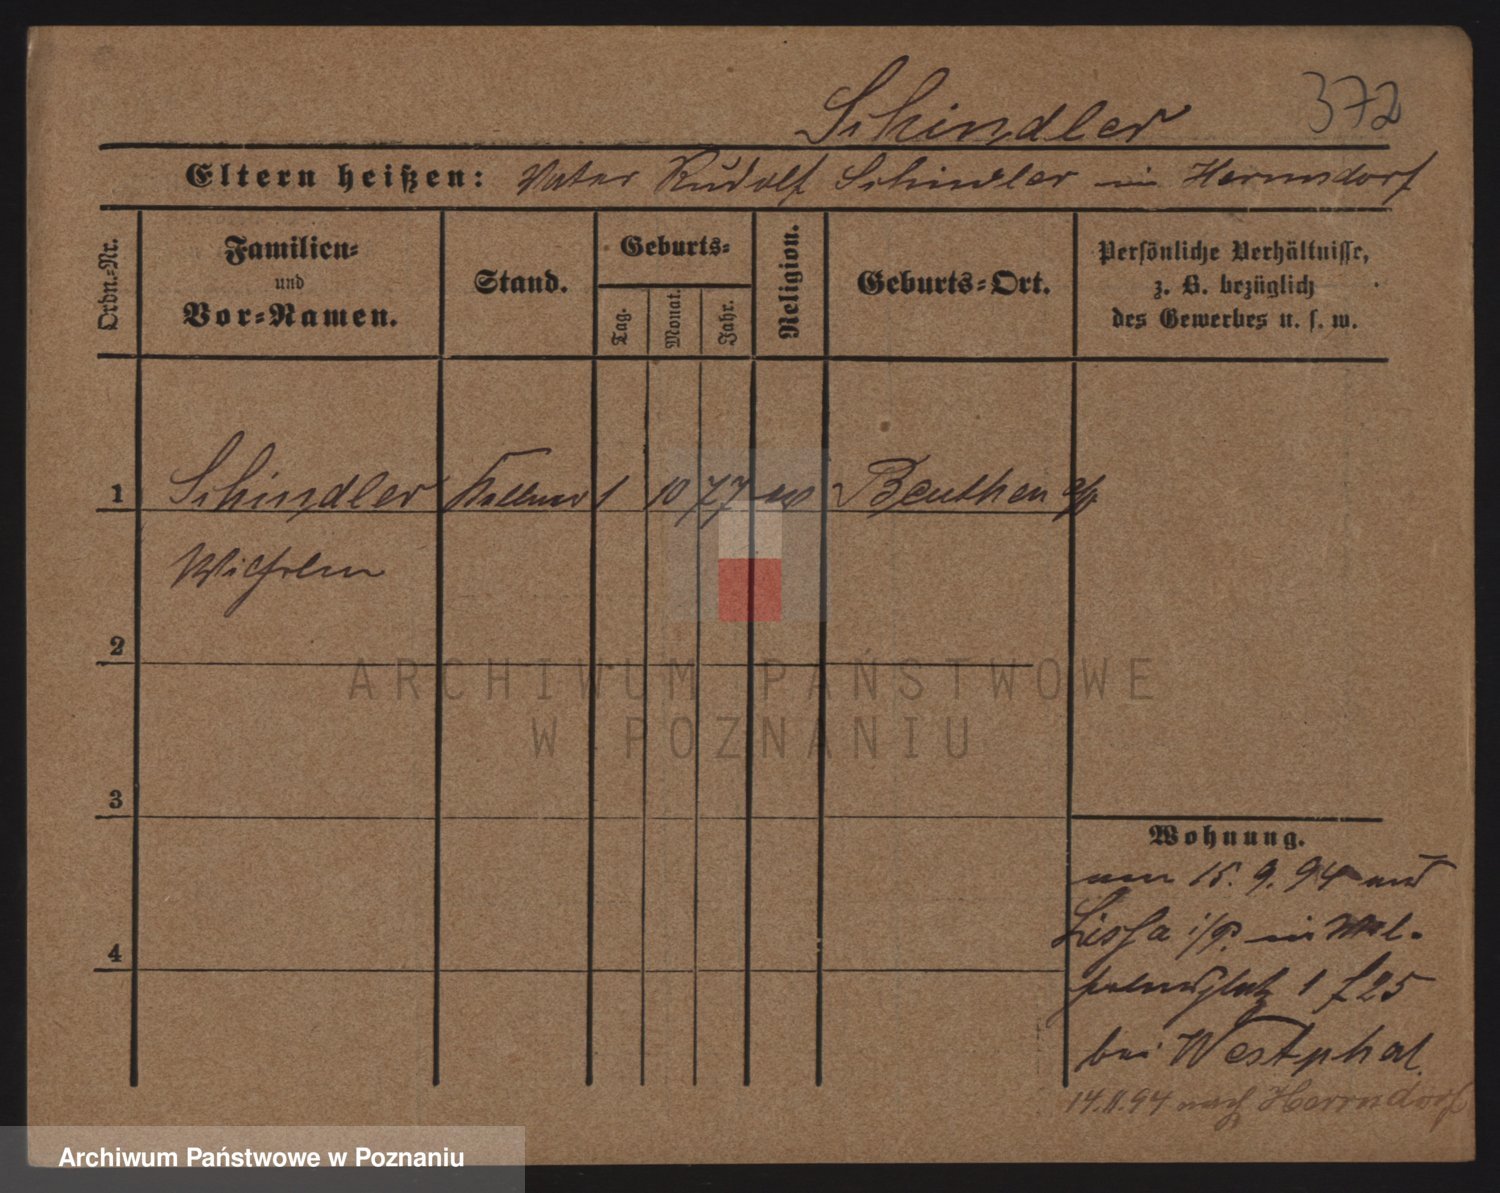 Schindler 372
Eltern heißen: Vater Rudolf Schindler in Herrndorf
Ordn.-Nr.
Familien-
und
Vor-Namen.
Stand.
Geburts-
Tag.
Monat.
Jahr.
Religion.
Geburts-Ort.
Persönliche Verhältnisse,
z. B. bezüglich
des Gewerbes u. s. w.
1 Schindler Kellner 1 10 77 Beuthen
Wilhelm
2
3
4
Wohnung.
15. 9. 94
Lissa i/P. in Wil-
helmsplatz 1
bei Westphal.
14.11.94 nach Herrndorf
ARCHIWUM PAŃSTWOWE
W POZNANIU
Archiwum Państwowe w Poznaniu